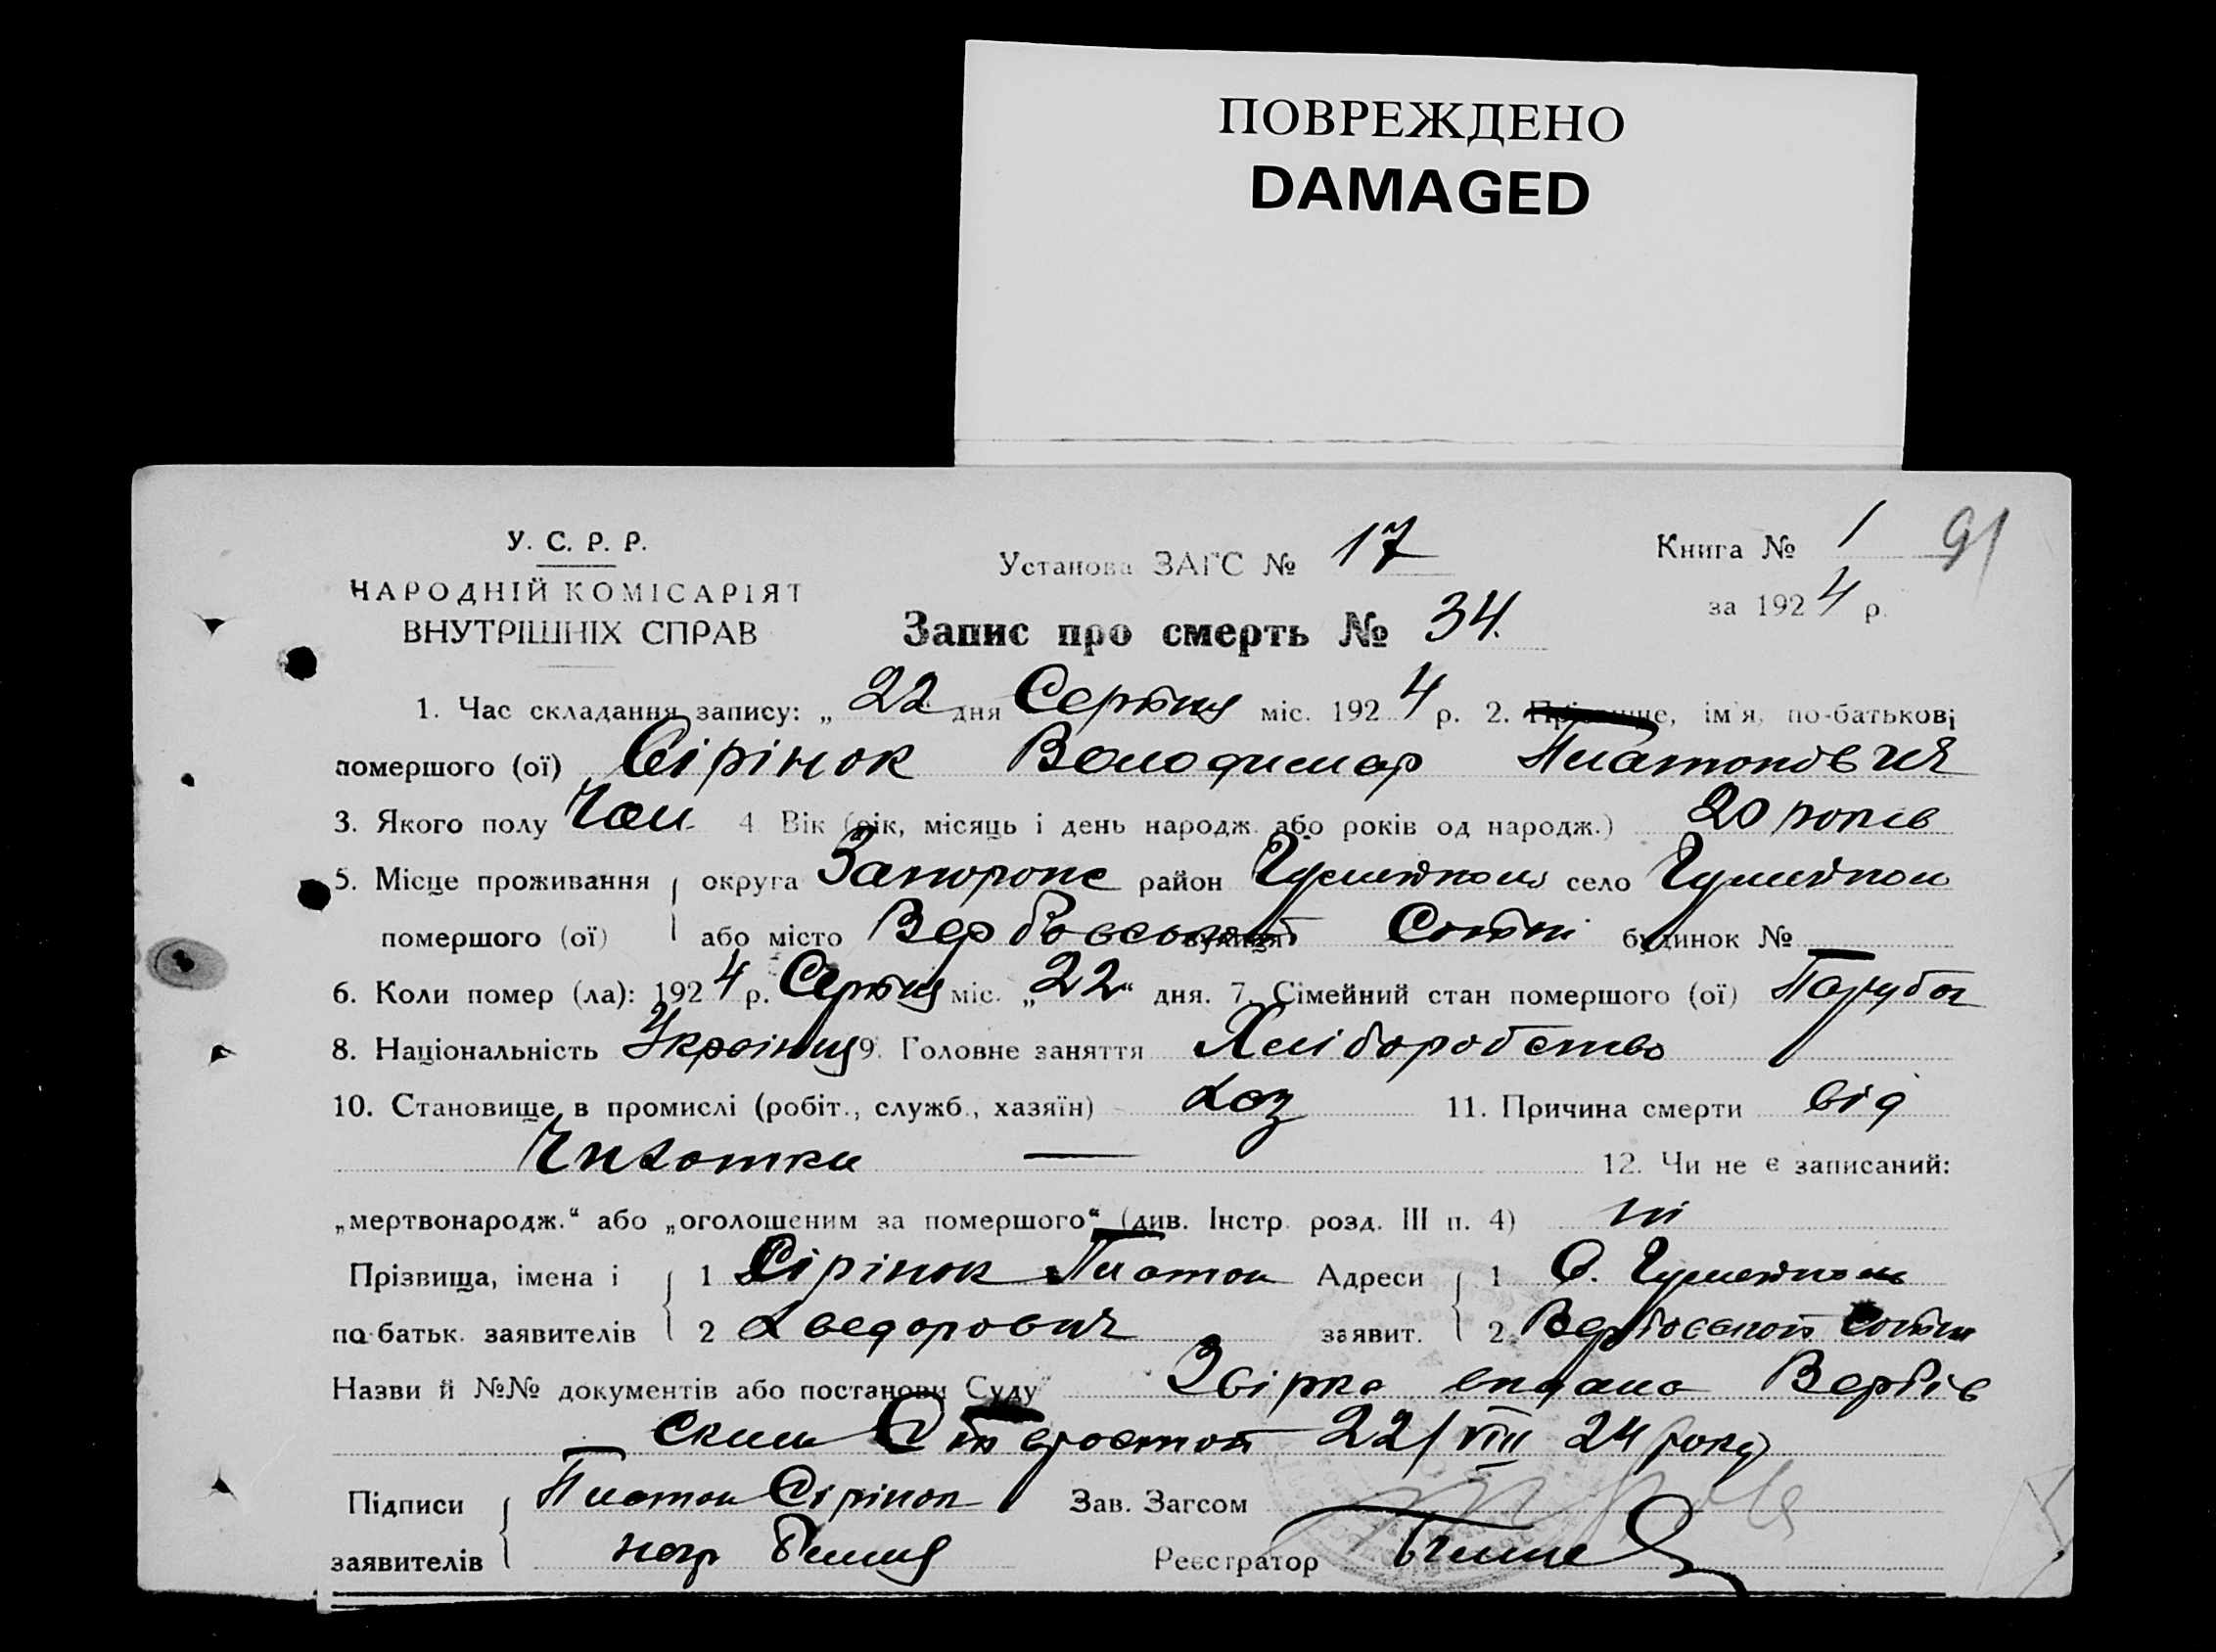 ПОВРЕЖДЕНО
DAMAGED
У. С. Р. Р.
НАРОДНІЙ КОМІСАРІЯТ
ВНУТРІШНІХ СПРАВ
Установа ЗАГС № 17
Книга № 1 91
за 1924 р.
Запис про смерть № 34.
1. Час складання запису: „ 22 дня Серпня міс. 1924 р. 2. Прізвище, ім'я, по-батькові
помершого (ої) Сірінок Володимар Платонович
3. Якого полу Чол. 4 Вік (рік, місяць і день народж. або років од народж.) 20 років
5. Місце проживання округа район село
помершого (ої) або місто вулиця Сотні будинок №
6. Коли помер (ла): 1924 р. Серпня міс. „22“ дня. 7. Сімейний стан помершого (ої) Парубок
8. Національність 9. Головне заняття Хліборобство
10. Становище в промислі (робіт., служб., хазяїн) хоз 11. Причина смерти від
Чихотки — 12. Чи не є записаний:
„мертвонародж.“ або „оголошеним за помершого“ (див. Інстр. розд. III п. 4) ні
Прізвища, імена і 1 Сірінок Платон Адреси 1 С.
по-батьк. заявителів 2 Хведорович заявит. 2 Сотни
Назви й №№ документів або постанови Суду Звірка видана Вербів
22/VIII 24 року
Підписи Платон Сірінок Зав. Загсом
заявителів Реєстратор